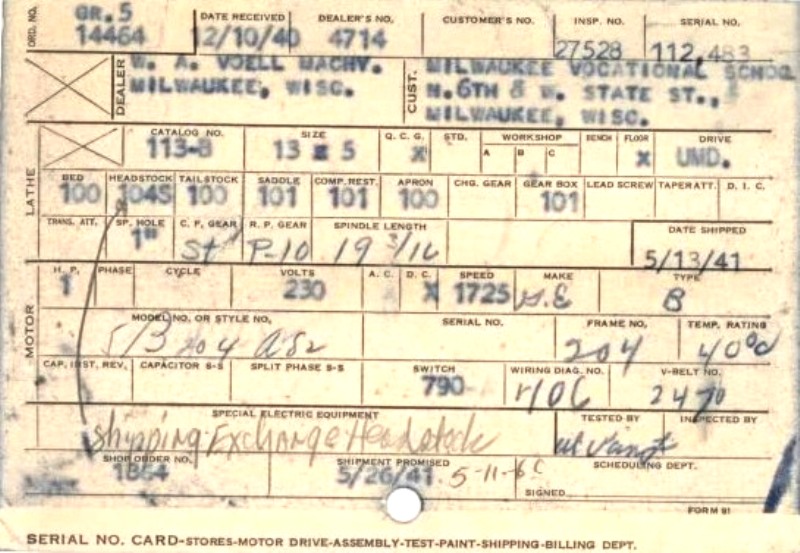 ORD. NO. GR.5 14464 DATE RECEIVED 12/10/40 DEALER'S NO. 4714 CUSTOMER'S NO. INSP. NO. 27528 SERIAL NO. 112,483
DEALER W. A. VOELL MACHY. MILWAUKEE, WISC. CUST. MILWAUKEE VOCATIONAL SCHOOL N.6TH & W. STATE ST., MILWAUKEE, WISC.
LATHE
CATALOG NO. 113-B SIZE 13 x 5 Q. C. G. X STD. WORKSHOP A B C BENCH FLOOR X DRIVE UMD.
BED 100 HEADSTOCK 104S TAILSTOCK 100 SADDLE 101 COMP. REST. 101 APRON 100 CHG. GEAR GEAR BOX 101 LEAD SCREW TAPER ATT. D. I. C.
TRANS. ATT. SP. HOLE 1" C. P. GEAR St R. P. GEAR P-10 SPINDLE LENGTH 19 3/16 DATE SHIPPED 5/13/41
MOTOR
H. P. 1 PHASE CYCLE VOLTS 230 A. C. D. C. X SPEED 1725 MAKE G.E TYPE B
MODEL NO. OR STYLE NO. 5/B 204 SERIAL NO. FRAME NO. 204 TEMP. RATING 40°
CAP. INST. REV. CAPACITOR S-S SPLIT PHASE S-S SWITCH 790 WIRING DIAG. NO. V-BELT NO. 2470
SPECIAL ELECTRIC EQUIPMENT TESTED BY INSPECTED BY
Shipping Exchange Headstock
SHOP ORDER NO. 1864 SHIPMENT PROMISED 5/26/41 SCHEDULING DEPT.
SIGNED
FORM 91
SERIAL NO. CARD-STORES-MOTOR DRIVE-ASSEMBLY-TEST-PAINT-SHIPPING-BILLING DEPT.